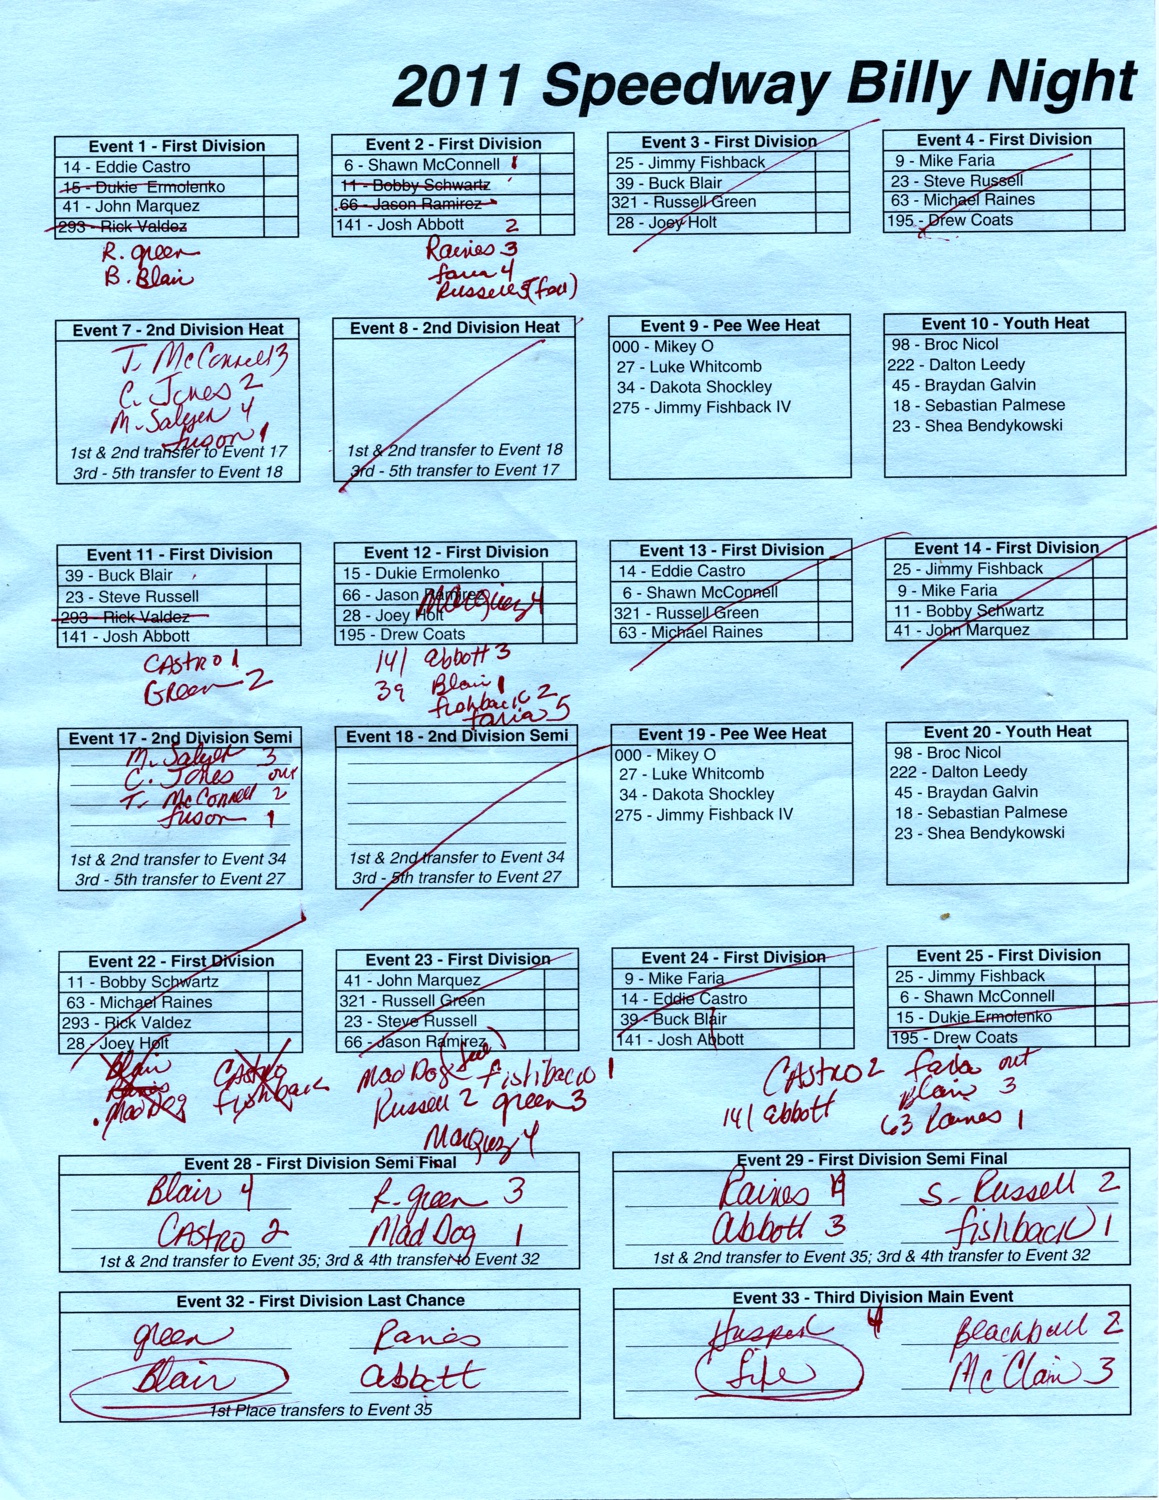 2011 Speedway Billy Night
Event 1 - First Division
14 - Eddie Castro
15 - Dukie Ermolenko
41 - John Marquez
293 - Rick Valdez
R. green
B. Blair
Event 2 - First Division
6 - Shawn McConnell 1
11 - Bobby Schwartz
66 - Jason Ramirez
141 - Josh Abbott 2
Raines 3
faria 4
Russell
Event 3 - First Division
25 - Jimmy Fishback
39 - Buck Blair
321 - Russell Green
28 - Joey Holt
Event 4 - First Division
9 - Mike Faria
23 - Steve Russell
63 - Michael Raines
195 - Drew Coats
Event 7 - 2nd Division Heat
T. McConnell 3
C. Jones 2
M. Salyer 4
fuson 1
1st & 2nd transfer to Event 17
3rd - 5th transfer to Event 18
Event 8 - 2nd Division Heat
1st & 2nd transfer to Event 18
3rd - 5th transfer to Event 17
Event 9 - Pee Wee Heat
000 - Mikey O
27 - Luke Whitcomb
34 - Dakota Shockley
275 - Jimmy Fishback IV
Event 10 - Youth Heat
98 - Broc Nicol
222 - Dalton Leedy
45 - Braydan Galvin
18 - Sebastian Palmese
23 - Shea Bendykowski
Event 11 - First Division
39 - Buck Blair
23 - Steve Russell
293 - Rick Valdez
141 - Josh Abbott
CASTRO 1
Green 2
Event 12 - First Division
15 - Dukie Ermolenko
66 - Jason Ramirez
Marquez 4
28 - Joey Holt
195 - Drew Coats
141 abbott 3
39 Blair 1
fishback 2
faria 5
Event 13 - First Division
14 - Eddie Castro
6 - Shawn McConnell
321 - Russell Green
63 - Michael Raines
Event 14 - First Division
25 - Jimmy Fishback
9 - Mike Faria
11 - Bobby Schwartz
41 - John Marquez
Event 17 - 2nd Division Semi
M. Salyer 3
C. Jones out
T. McConnell 2
fuson 1
1st & 2nd transfer to Event 34
3rd - 5th transfer to Event 27
Event 18 - 2nd Division Semi
1st & 2nd transfer to Event 34
3rd - 5th transfer to Event 27
Event 19 - Pee Wee Heat
000 - Mikey O
27 - Luke Whitcomb
34 - Dakota Shockley
275 - Jimmy Fishback IV
Event 20 - Youth Heat
98 - Broc Nicol
222 - Dalton Leedy
45 - Braydan Galvin
18 - Sebastian Palmese
23 - Shea Bendykowski
Event 22 - First Division
11 - Bobby Schwartz
63 - Michael Raines
293 - Rick Valdez
28 - Joey Holt
Blair CASTRO
Mad Dog fishback
Event 23 - First Division
41 - John Marquez
321 - Russell Green
23 - Steve Russell
66 - Jason Ramirez
Mad Dog fishback 1
Russell 2 green 3
Marquez 4
Event 24 - First Division
9 - Mike Faria
14 - Eddie Castro
39 - Buck Blair
141 - Josh Abbott
Event 25 - First Division
25 - Jimmy Fishback
6 - Shawn McConnell
15 - Dukie Ermolenko
195 - Drew Coats
CASTRO 2 faria out
Blair 3
141 abbott 63 Raines 1
Event 28 - First Division Semi Final
Blair 4 R. green 3
CASTRO 2 Mad Dog 1
1st & 2nd transfer to Event 35; 3rd & 4th transfer to Event 32
Event 29 - First Division Semi Final
Raines 4 S. Russell 2
abbott 3 fishback 1
1st & 2nd transfer to Event 35; 3rd & 4th transfer to Event 32
Event 32 - First Division Last Chance
green Ranies
Blair abbott
1st Place transfers to Event 35
Event 33 - Third Division Main Event
4 Beachball 2
McClain 3